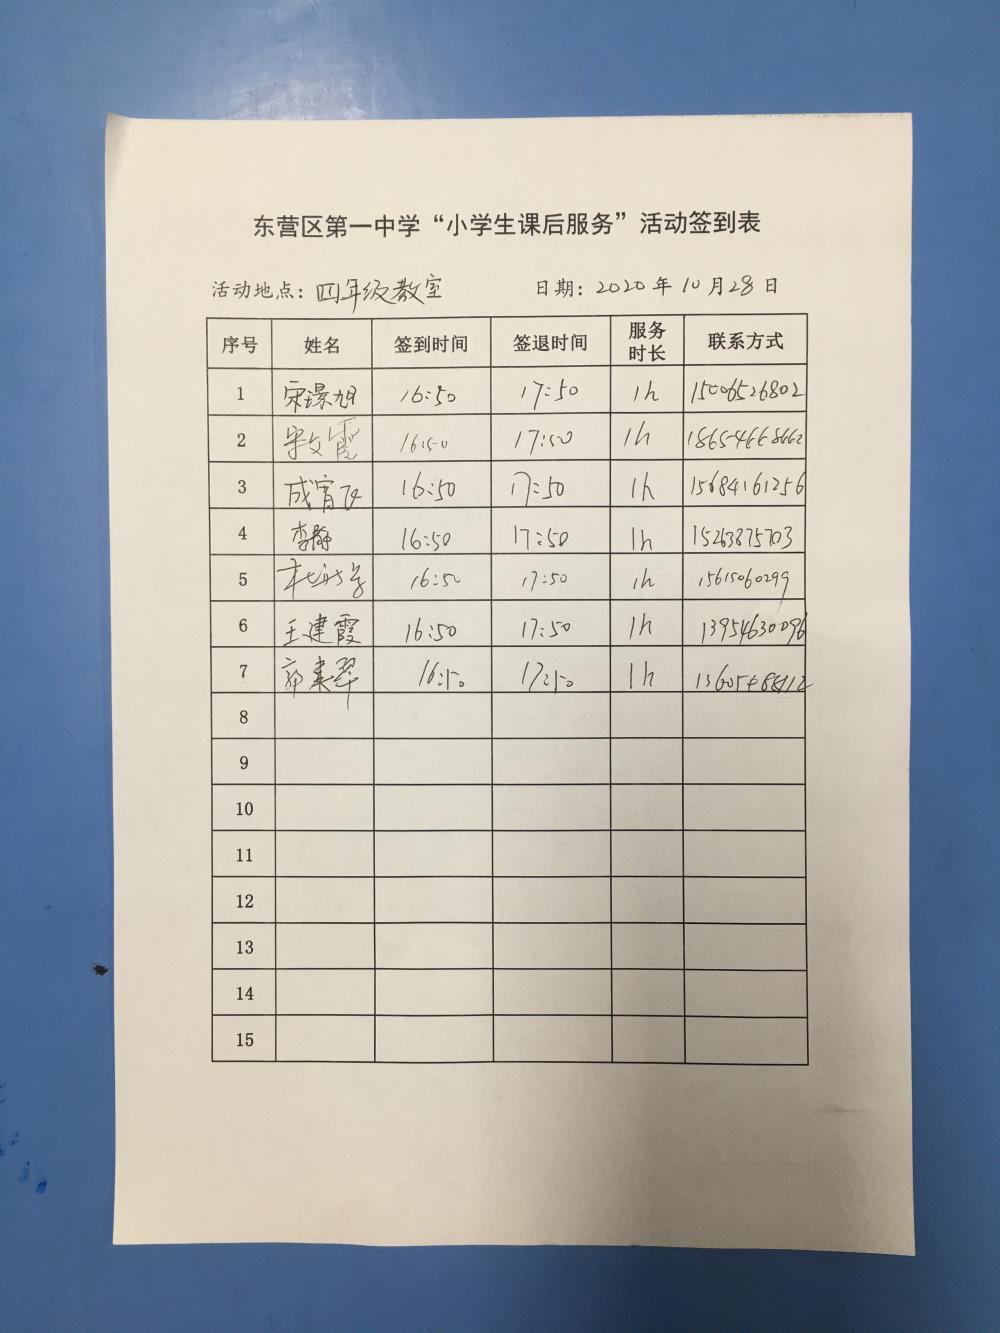 东营区第一中学“小学生课后服务”活动签到表
活动地点：四年级教室 日期：2020 年 10 月 28 日
序号 姓名 签到时间 签退时间 服务时长 联系方式
1 宋璟旭 16:50 17:50 1h 15006526802
2 宋文霞 16:50 17:50 1h 18654668662
3 成宵飞 16:50 17:50 1h 15684161256
4 李静 16:50 17:50 1h 15263875703
5 16:50 17:50 1h 15615060299
6 王建霞 16:50 17:50 1h 13954630096
7 16:50 17:50 1h
8
9
10
11
12
13
14
15